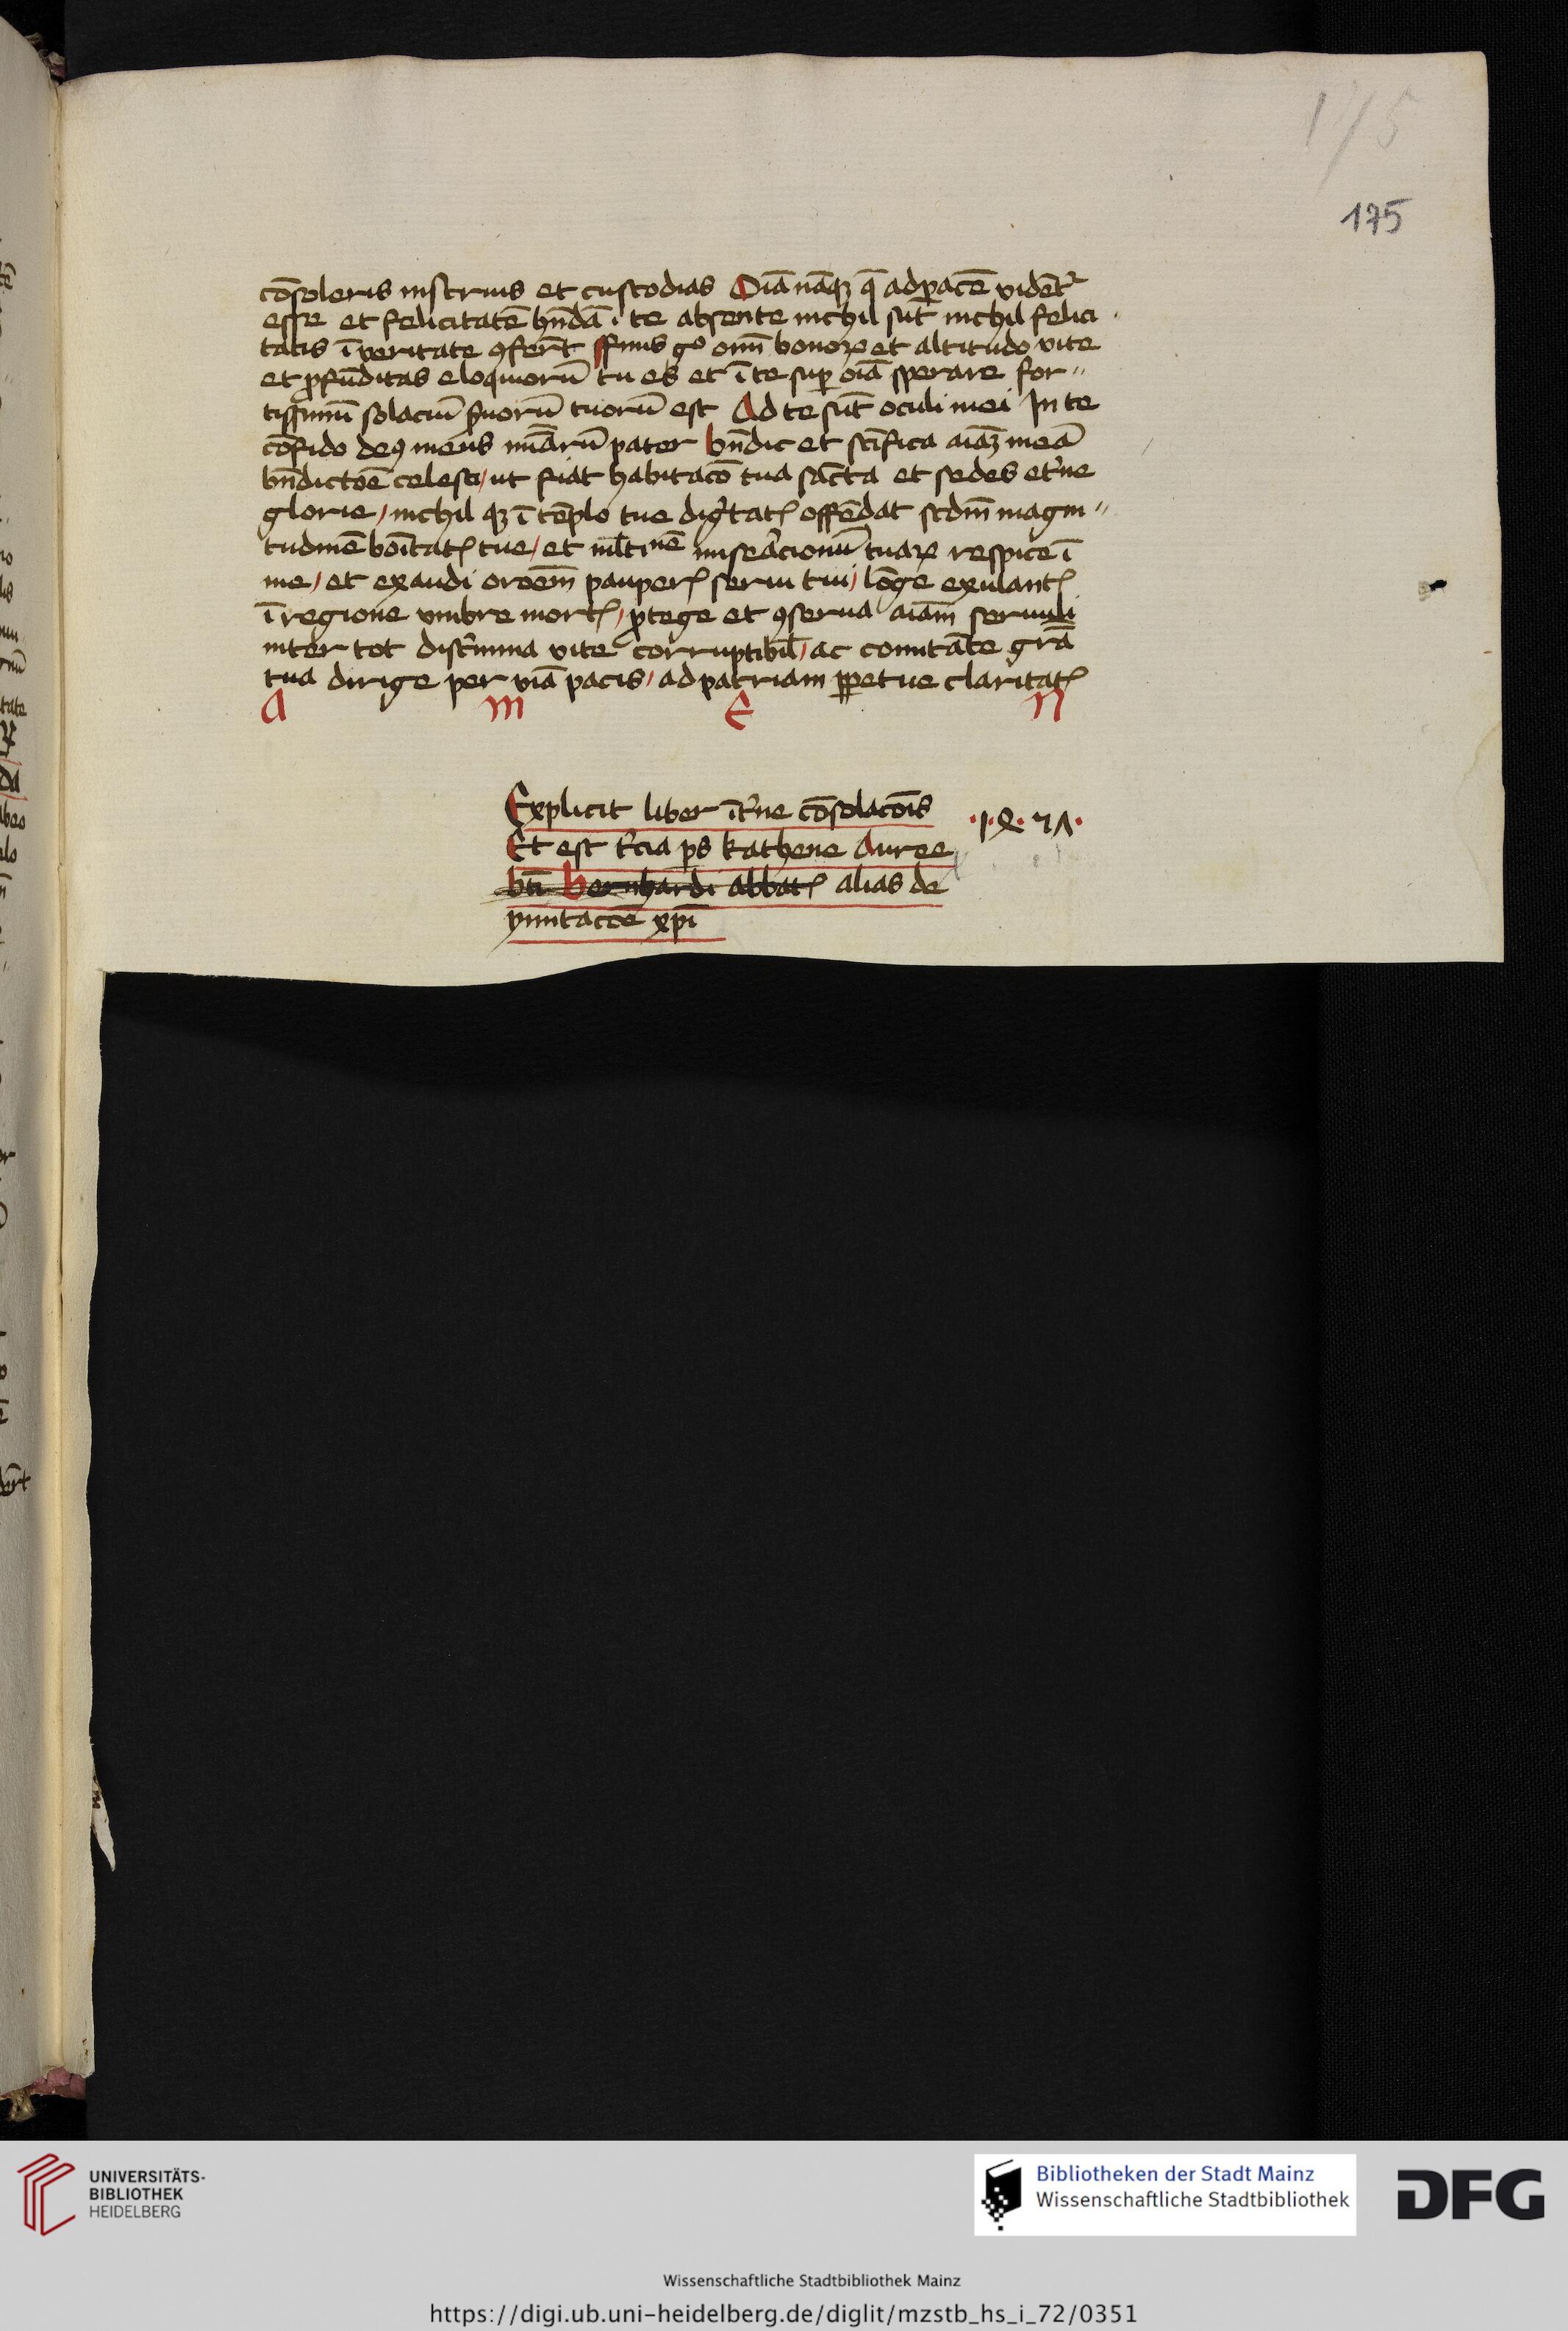 175
175
cōsoleris instruas et custodias Oīa nāqꝫ q̄ ad pacē vidēt᷑
esse et felicitatē hn̄dā i te absente nichil sūt nichil felici
tatis ī veritate ꝯferūt ffinis gͦ omī bonoꝝ et altitudo vite
et ꝓfūditas eloquiorū tu es et ī te suꝑ oīa sperare for〃
tissimū solaciū s̓uorū tuorū est Ad te sūt oculi mei In te
cōfido deꝯ meus mīarū pater bn̄dic et sc̄ifica aīaꝫ meā
bn̄dictōe celesti / ut fiat habitacō tua sācta et sedes et̓ne
glorie / nichil qꝫ ī tēplo tue dig̓tatꝭ offēdat scdm̄ magni〃
tudinē boītatꝭ tue / et ml̄tinē miseac̓ionū tuaꝝ respice ī
me / et exaudi oroēm pauperꝭ serui tui / lōge exulantꝭ
ī regione vmbre mortꝭ / ꝓtege et ꝯserua aīam seruuli
inter tot disc̓mina vite corruptibil̄ / ac comitāte grā
tua dirige per viā pacis / ad patriam ꝑpetue claritatꝭ
A m E n
Explicit liber īt̓ne cōsolacōis
Et est t̓cia ps kathene Auree
bti Bernhardi abbatꝭ alias de
ymitaccē xpī
UNIVERSITÄTS-
BIBLIOTHEK
HEIDELBERG
Bibliotheken der Stadt Mainz
Wissenschaftliche Stadtbibliothek
DFG
Wissenschaftliche Stadtbibliothek Mainz
https://digi.ub.uni-heidelberg.de/diglit/mzstb_hs_i_72/0351